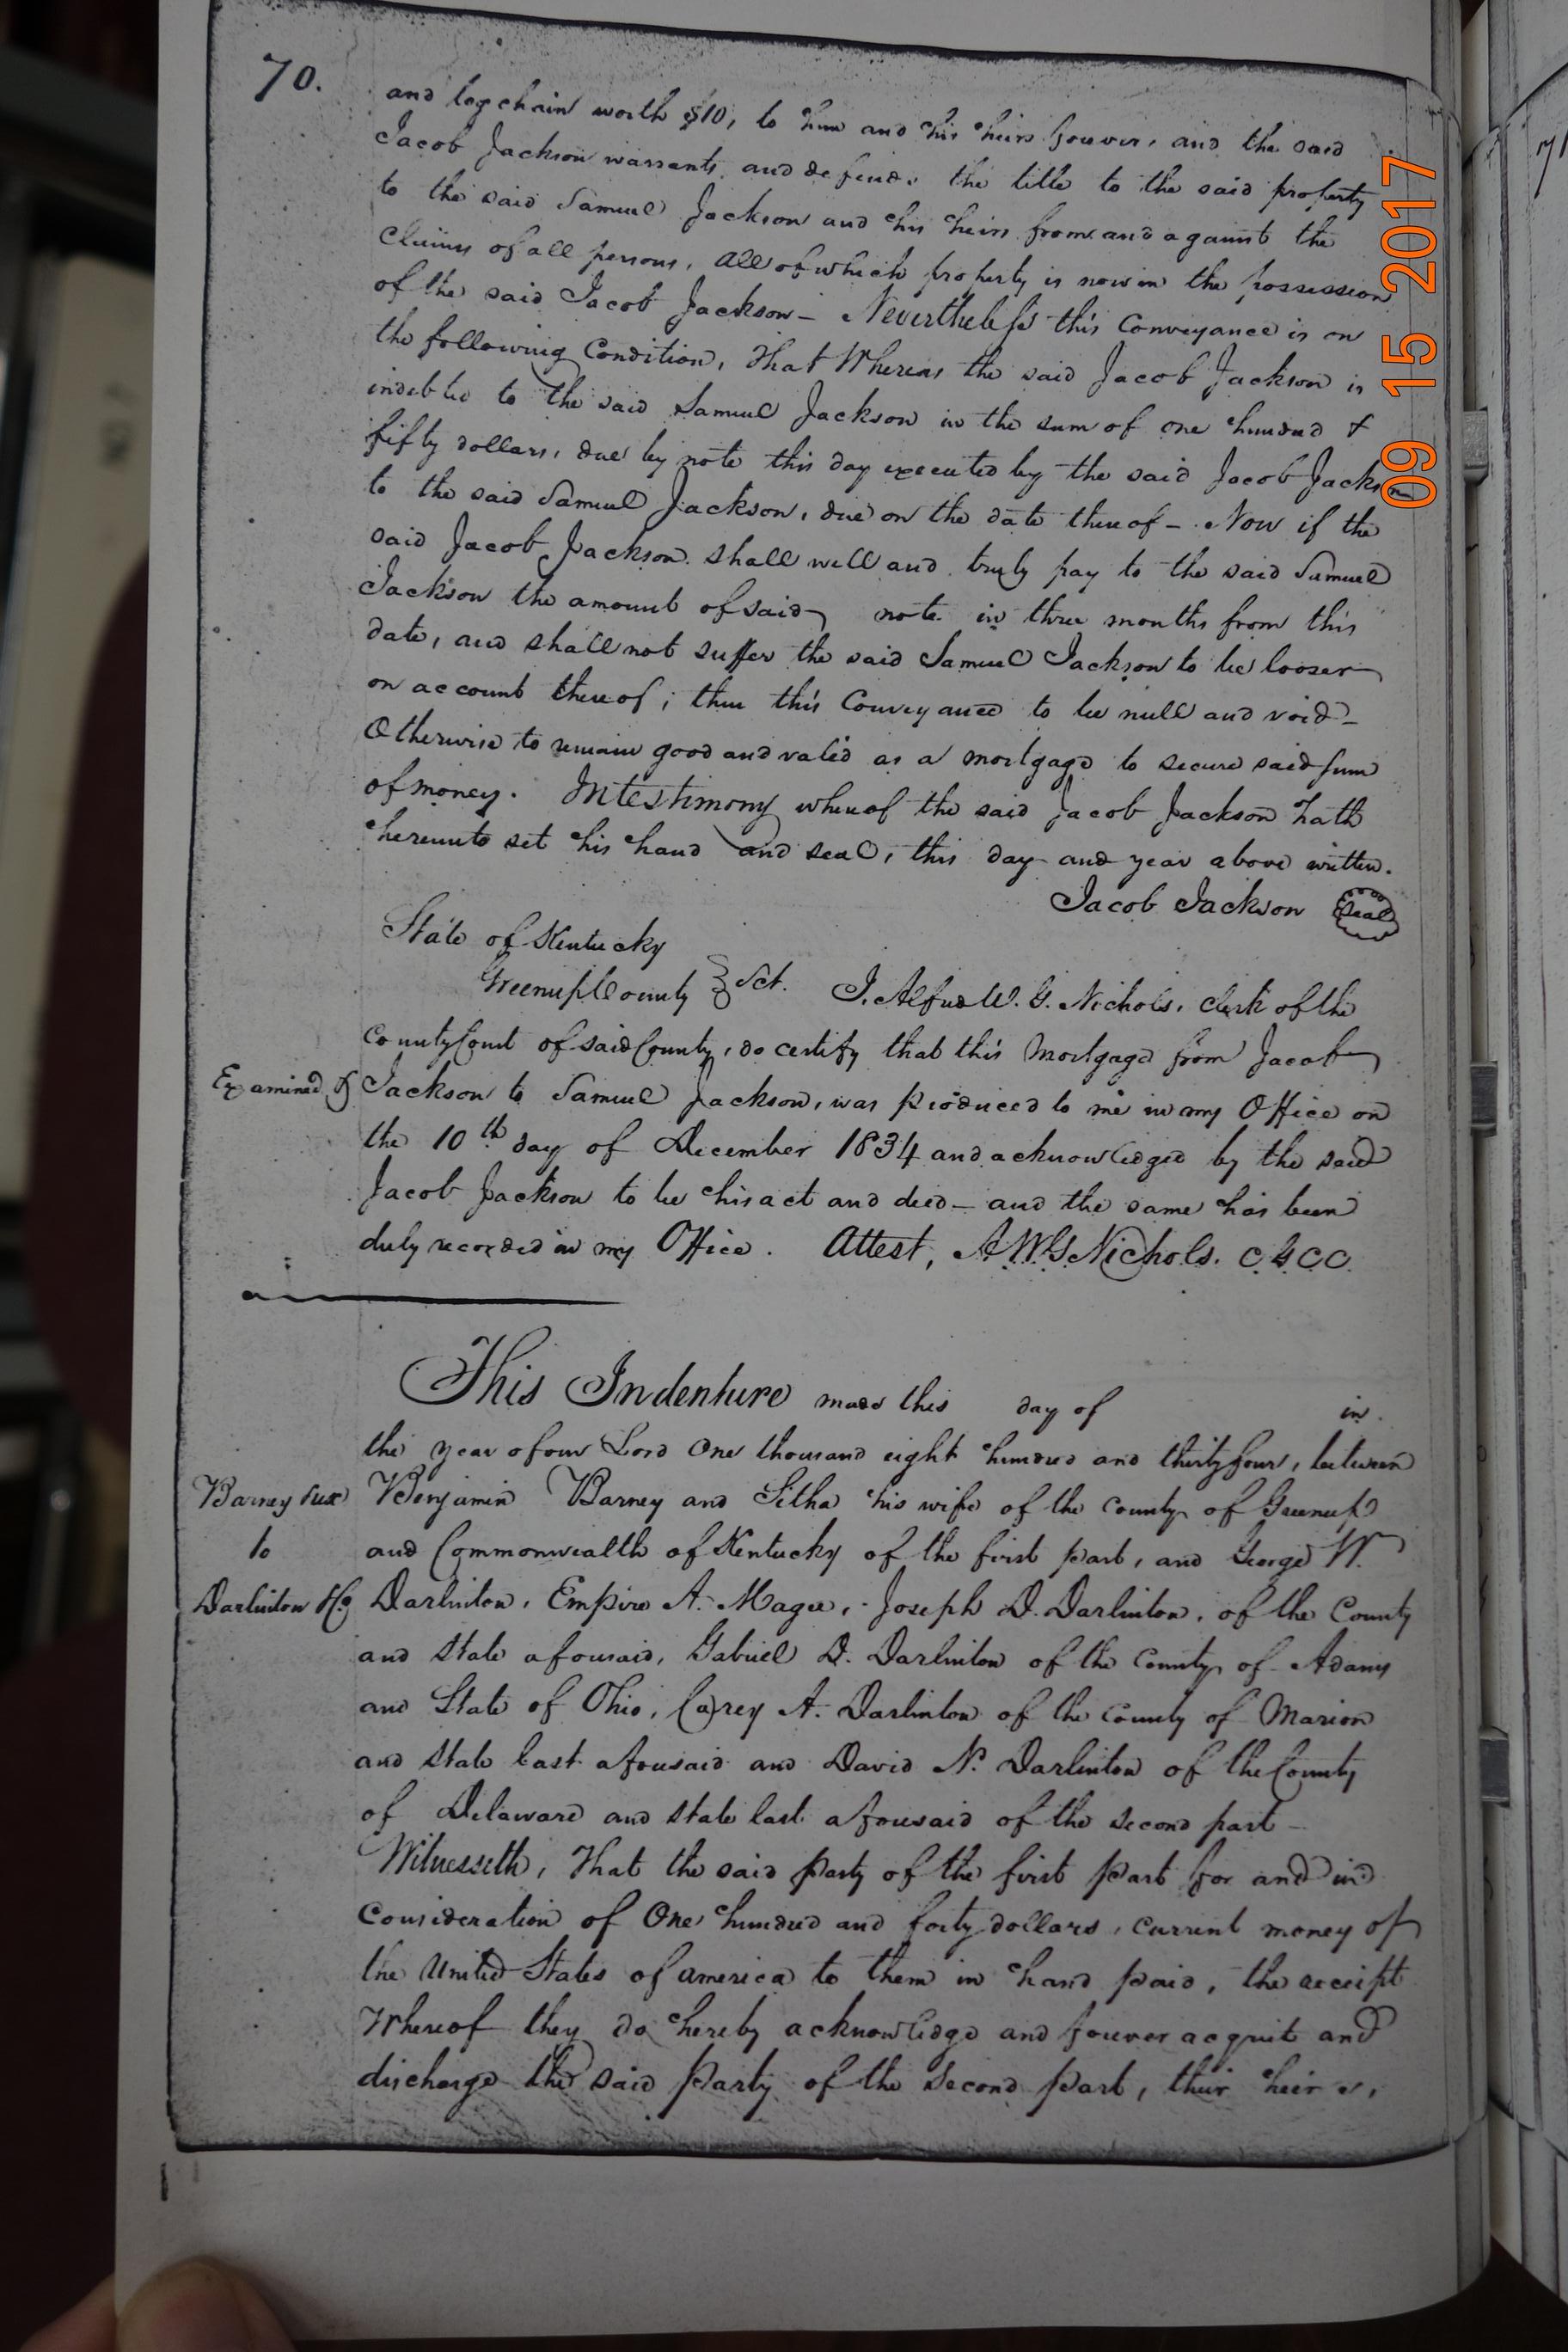 70.
and log chain worth $10, to him and his heirs forever, and the said
Jacob Jackson warrants and defends the title to the said property
to the said Samuel Jackson and his heirs from and against the
Claims of all persons, all of which property is now in the possession
of the said Jacob Jackson – Nevertheless this Conveyance is on
the following Condition, That Whereas the said Jacob Jackson is
indebted to the said Samuel Jackson in the sum of one hundred &
fifty dollars, due by note this day executed by the said Jacob Jackson
to the said Samuel Jackson, due on the date thereof – Now if the
said Jacob Jackson shall well and truly pay to the said Samuel
Jackson the amount of said note in three months from this
date, and shall not suffer the said Samuel Jackson to be looser
on account thereof; then this Conveyance to be null and void –
Otherwise to remain good and valid as a mortgage to secure said sum
of money. In testimony whereof the said Jacob Jackson hath
hereunto set his hand and seal, this day and year above written.
Jacob Jackson Seal
State of Kentucky
Greenup County } Sct. I, Alfred W. G. Nichols, Clerk of the
County Court of said County, do certify that this Mortgage from Jacob
Examined Jackson to Samuel Jackson, was produced to me in my Office on
the 10th day of December 1834 and acknowledged by the said
Jacob Jackson to be his act and deed – and the same has been
duly recorded in my Office. Attest, A W G Nichols. C G C C.
This Indenture made this day of in
the year of our Lord One thousand eight hundred and thirty four, between
Barney & ux Benjamin Barney and Litha his wife of the County of Greenup
to and Commonwealth of Kentucky of the first part, and George W.
Darlinton &c Darlinton, Empire A. Magee, Joseph D. Darlinton, of the County
and State aforesaid, Gabriel D. Darlinton of the County of Adams
and State of Ohio, Carey A. Darlinton of the County of Marion
and State last aforesaid and David N. Darlinton of the County
of Delaware and State last aforesaid of the second part –
Witnesseth, That the said Party of the first Part for and in
Consideration of One hundred and forty dollars, current money of
the United States of america to them in hand paid, the receipt
Whereof they do hereby acknowledge and forever acquit and
discharge the said Party of the second Part, their heirs,
09 15 2017
71